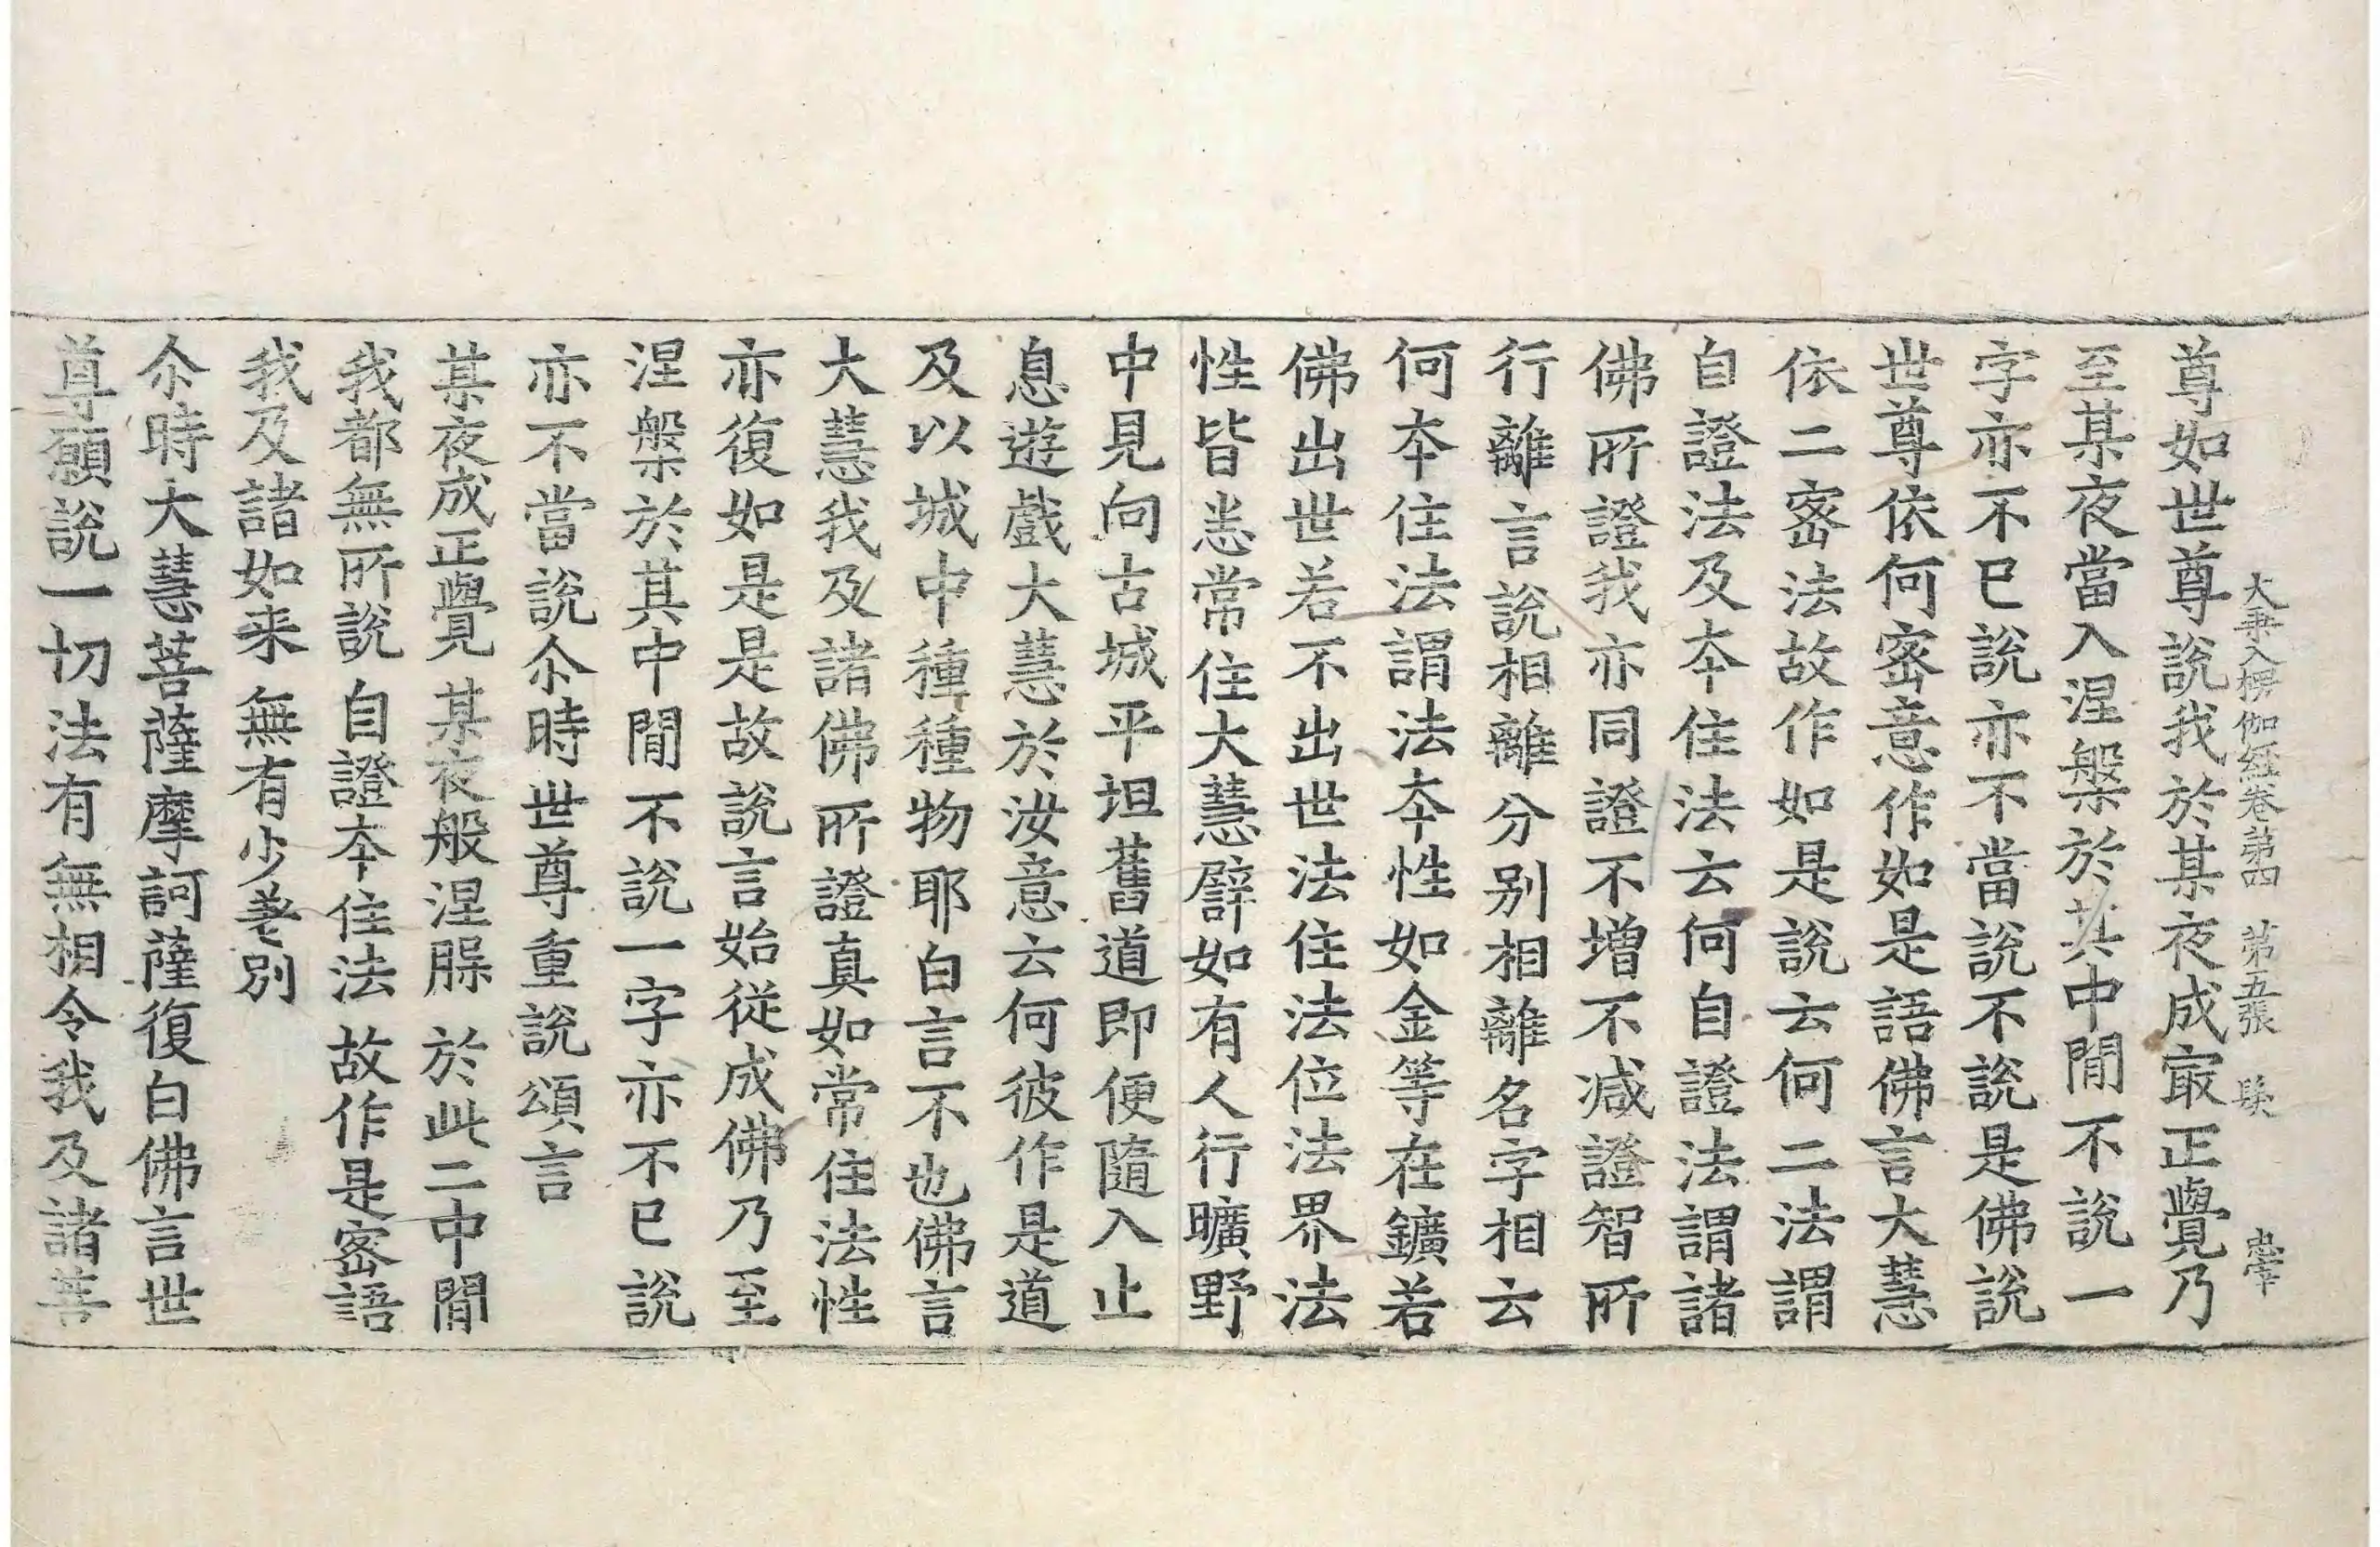 大乗入楞伽経卷第四 第五張
尊如世尊說我於某夜成㝡正覺乃
至某夜當入涅槃於其中間不說一
字亦不已說亦不當說不說是佛說
世尊依何密意作如是語佛言大慧
依二密法故作如是說云何二法謂
自證法及夲住法云何自證法謂諸
佛所證我亦同證不增不减證智所
行離言說相離分别相離名字相云
何夲住法謂法夲性如金等在鑛若
佛出世若不出世法住法位法界法
性皆悉常住大慧譬如有人行曠野
中見向古城平坦舊道即便隨入止
息遊戲大慧於汝意云何彼作是道
及以城中種種物耶白言不也佛言
大慧我及諸佛所證真如常住法性
亦復如是是故說言始從成佛乃至
涅槃於其中間不說一字亦不已說
亦不當說尒時世尊重說頌言
某夜成正覺 某夜般涅槃 於此二中間
我都無所說 自證夲住法 故作是密語
我及諸如来 無有少差別
尒時大慧菩薩摩訶薩復白佛言世
尊願說一切法有無相令我及諸菩